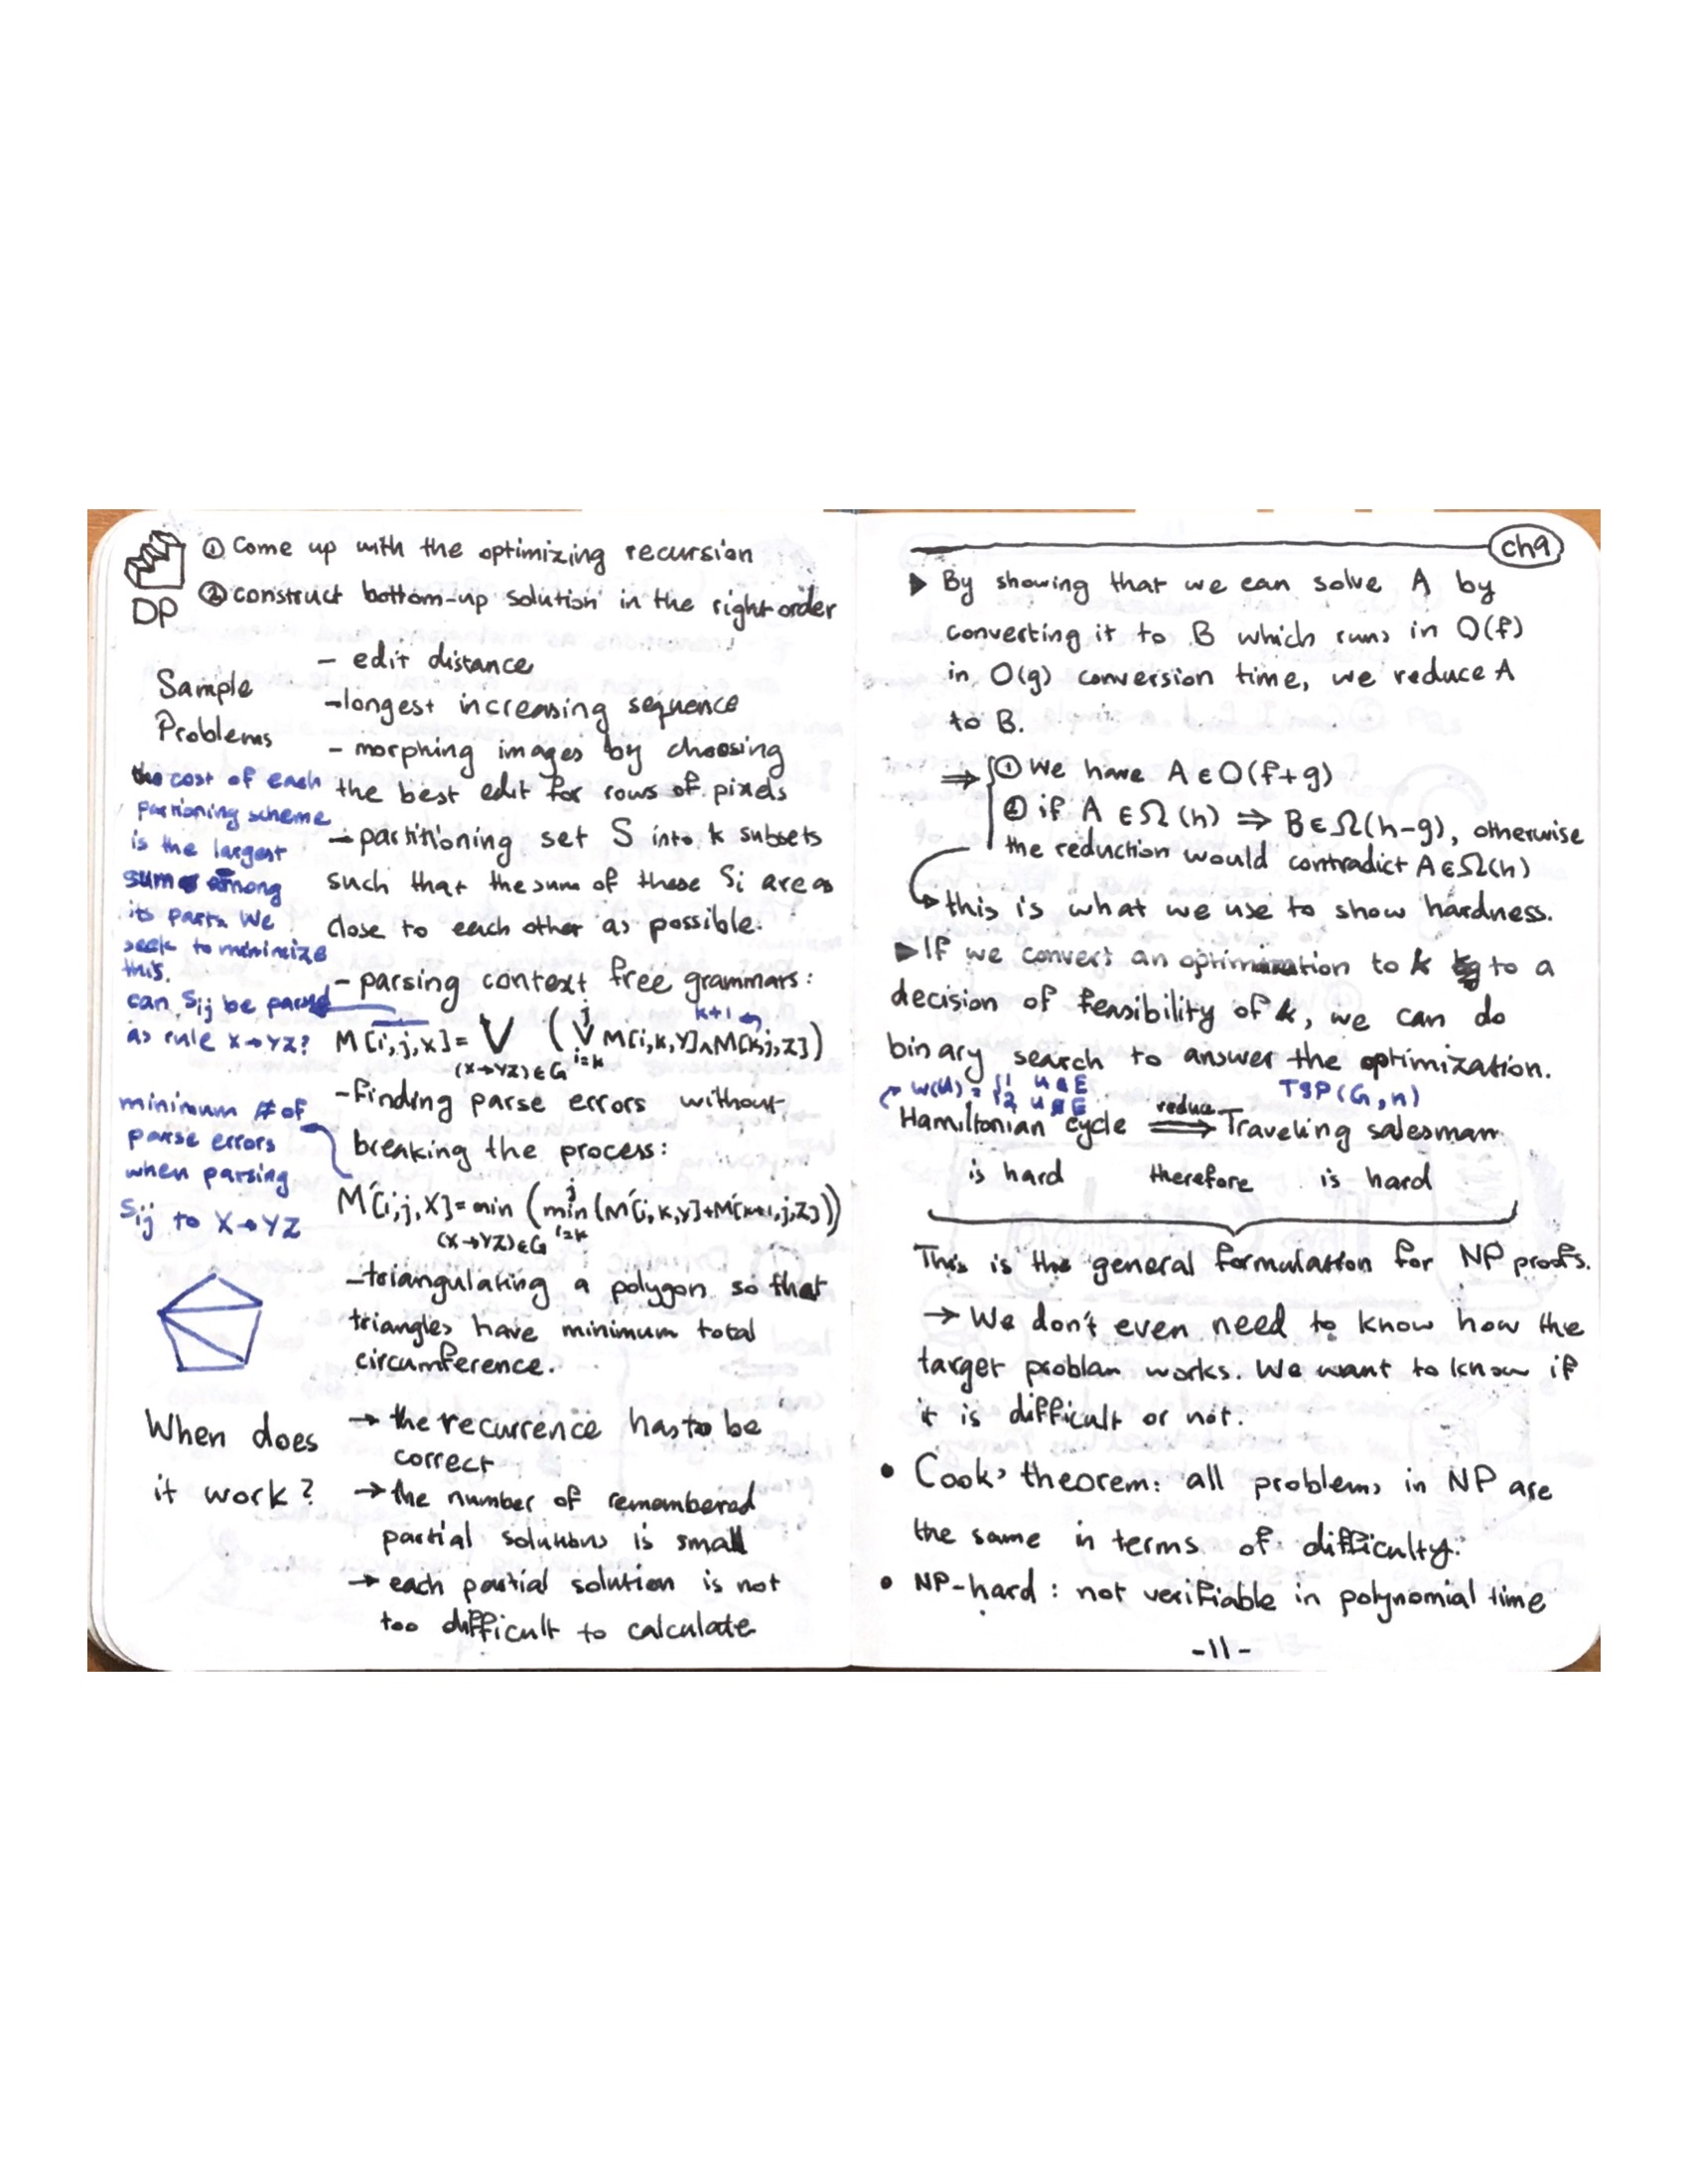 ① Come up with the optimizing recursion
② construct bottom-up solution in the right order
DP
Sample
Problems
- edit distance
- longest increasing sequence
- morphing images by choosing
the best edit for rows of pixels
- partitioning set S into k subsets
such that the sum of these Si are as
close to each other as possible.
the cost of each
partioning scheme
is the largest
sum among
its parts. We
seek to minimize
this.
- parsing context free grammars:
can Sij be parsed
as rule X→YZ?
k+1
M[i,j,x] = ⋁ (X→YZ)∈G ( ⋁ i=k j M[i,k,Y]∧M[k,j,Z])
- finding parse errors without
breaking the process:
minimum # of
parse errors
when parsing
Sij to X→YZ
M'[i,j,X] = min (X→YZ)∈G ( min i=k j (M'[i,k,y]+M'[k+1,j,Z]))
- triangulating a polygon so that
triangles have minimum total
circumference.
When does
it work?
→ the recurrence has to be
correct
→ the number of remembered
partial solutions is small
→ each partial solution is not
too difficult to calculate
ch9
▶ By showing that we can solve A by
converting it to B which runs in O(f)
in O(g) conversion time, we reduce A
to B.
⇒ ① We have A ∈ O(f+g)
② if A ∈ Ω(h) ⇒ B ∈ Ω(h-g), otherwise
the reduction would contradict A ∈ Ω(h)
this is what we use to show hardness.
▶ If we convert an optimization to k to a
decision of feasibility of k, we can do
binary search to answer the optimization.
w(u) = {1 u ∈ E
2 u ∉ E
TSP(G,n)
Hamiltonian cycle reduce ⇒ Traveling salesman
is hard therefore is hard
This is the general formulation for NP proofs.
→ We don't even need to know how the
target problem works. We want to know if
it is difficult or not.
• Cook's theorem: all problems in NP are
the same in terms of difficulty.
• NP-hard: not verifiable in polynomial time
-11-